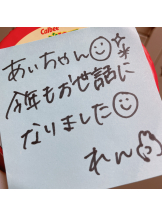 Calbee
あいちゃん☺
今年もお世話に
なりました☺
れん